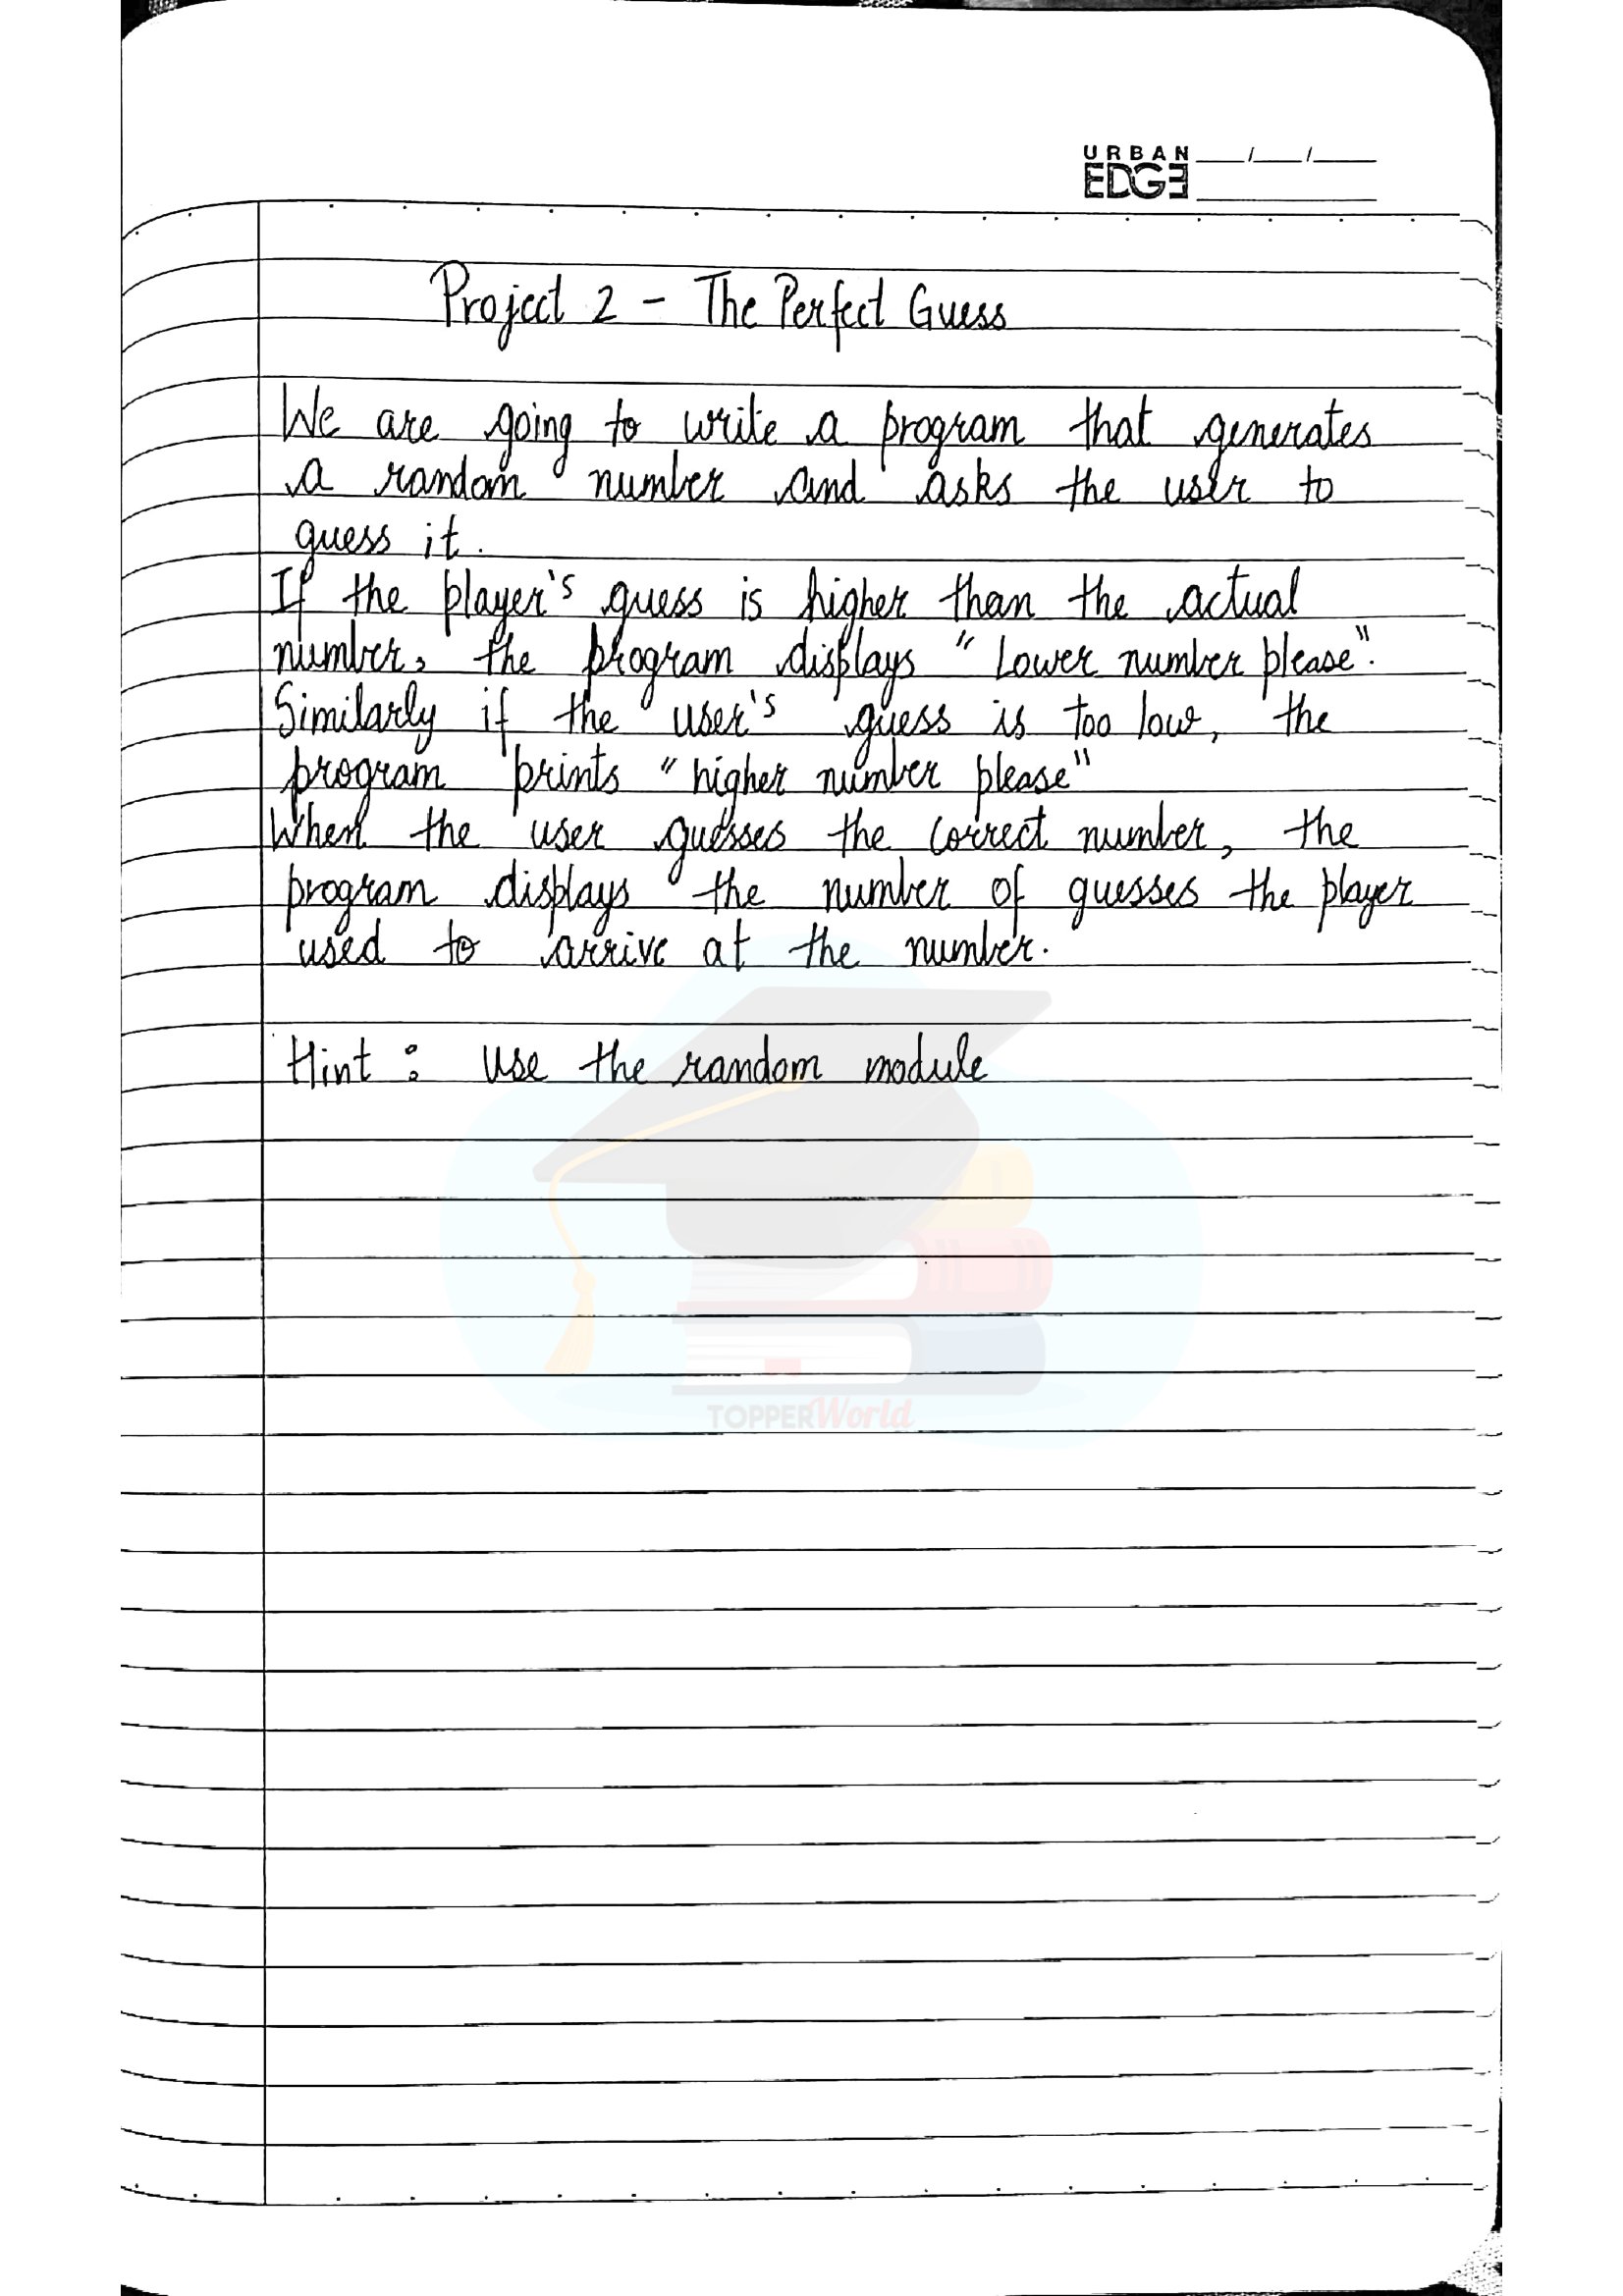 URBAN
EDGE
Project 2 - The Perfect Guess
We are going to write a program that generates
a random number and asks the user to
guess it.
If the player's guess is higher than the actual
number, the program displays "Lower number please".
Similarly if the user's guess is too low, the
program prints "higher number please"
When the user guesses the correct number, the
program displays the number of guesses the player
used to arrive at the number.
Hint : Use the random module
TOPPERWorld